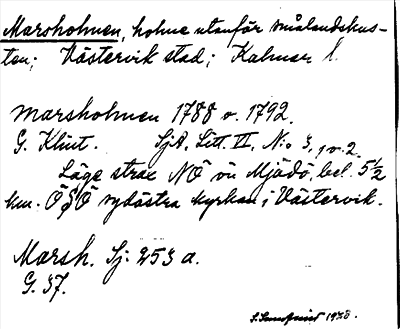 Marsholmen, holme utanför smålandskus-
ten; Västervik stad; Kalmar l.
Marsholmen 1788 o. 1792.
G. Klint. SjA. Litt. VI, N:o 3, 1 o. 2.
Läge strax NÖ ön Mjödö, bel. 5½
km. ÖSÖ sydöstra kyrkan i Västervik.
Marsh. Sj: 253 a.
G. 37.
1938.